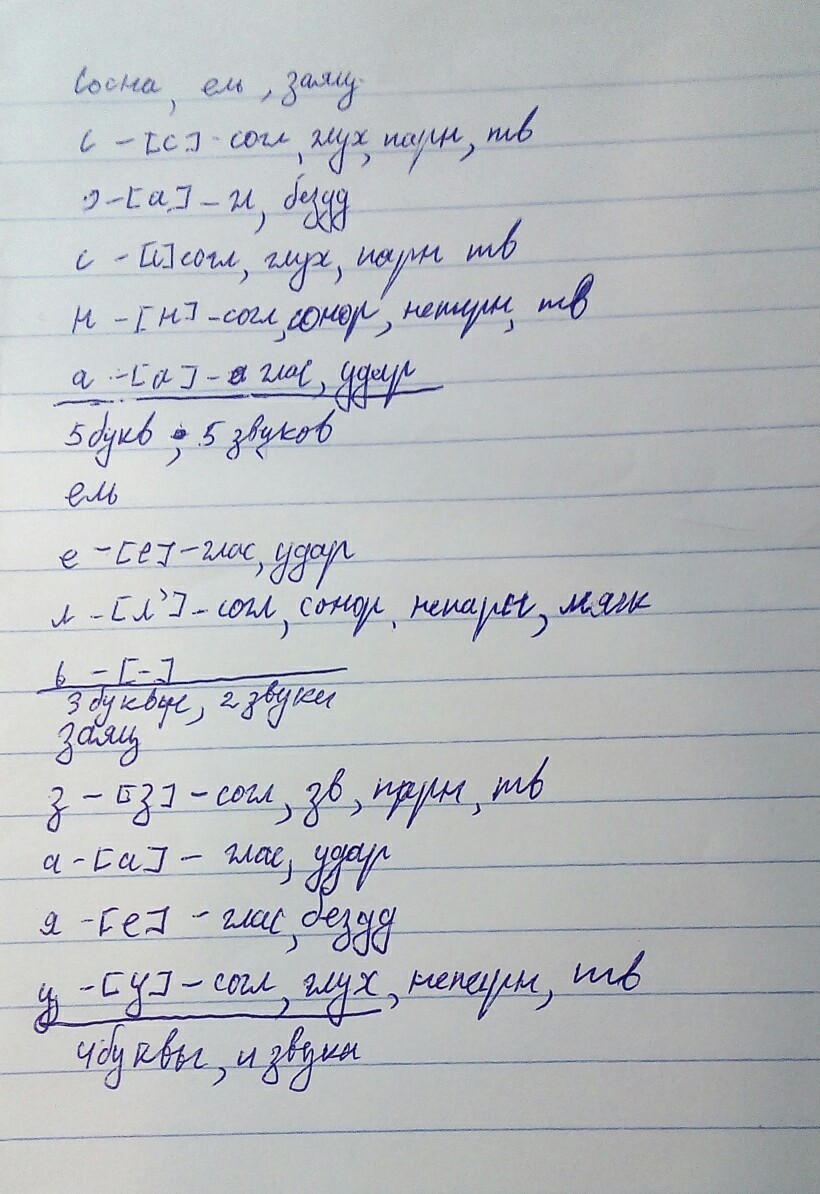 Сосна, ель, заяц.
с - [с] - согл, глух, парн, тв
о - [а] - гл, безуд
с - [с] согл, глух, парн тв
н - [н] - согл, сонор, непарн, тв
а - [а] - глас, удар
5 букв, 5 звуков
ель
е - [е] - глас, удар
л - [л'] - согл, сонор, непарн, мягк
ь - [-]
3 буквы, 2 звуки
заяц
з - [з] - согл, зв, парн, тв
а - [а] - глас, удар
я - [е] - глас, безуд
ц - [ц] - согл, глух, непарн, тв
4 буквы, 4 звуки